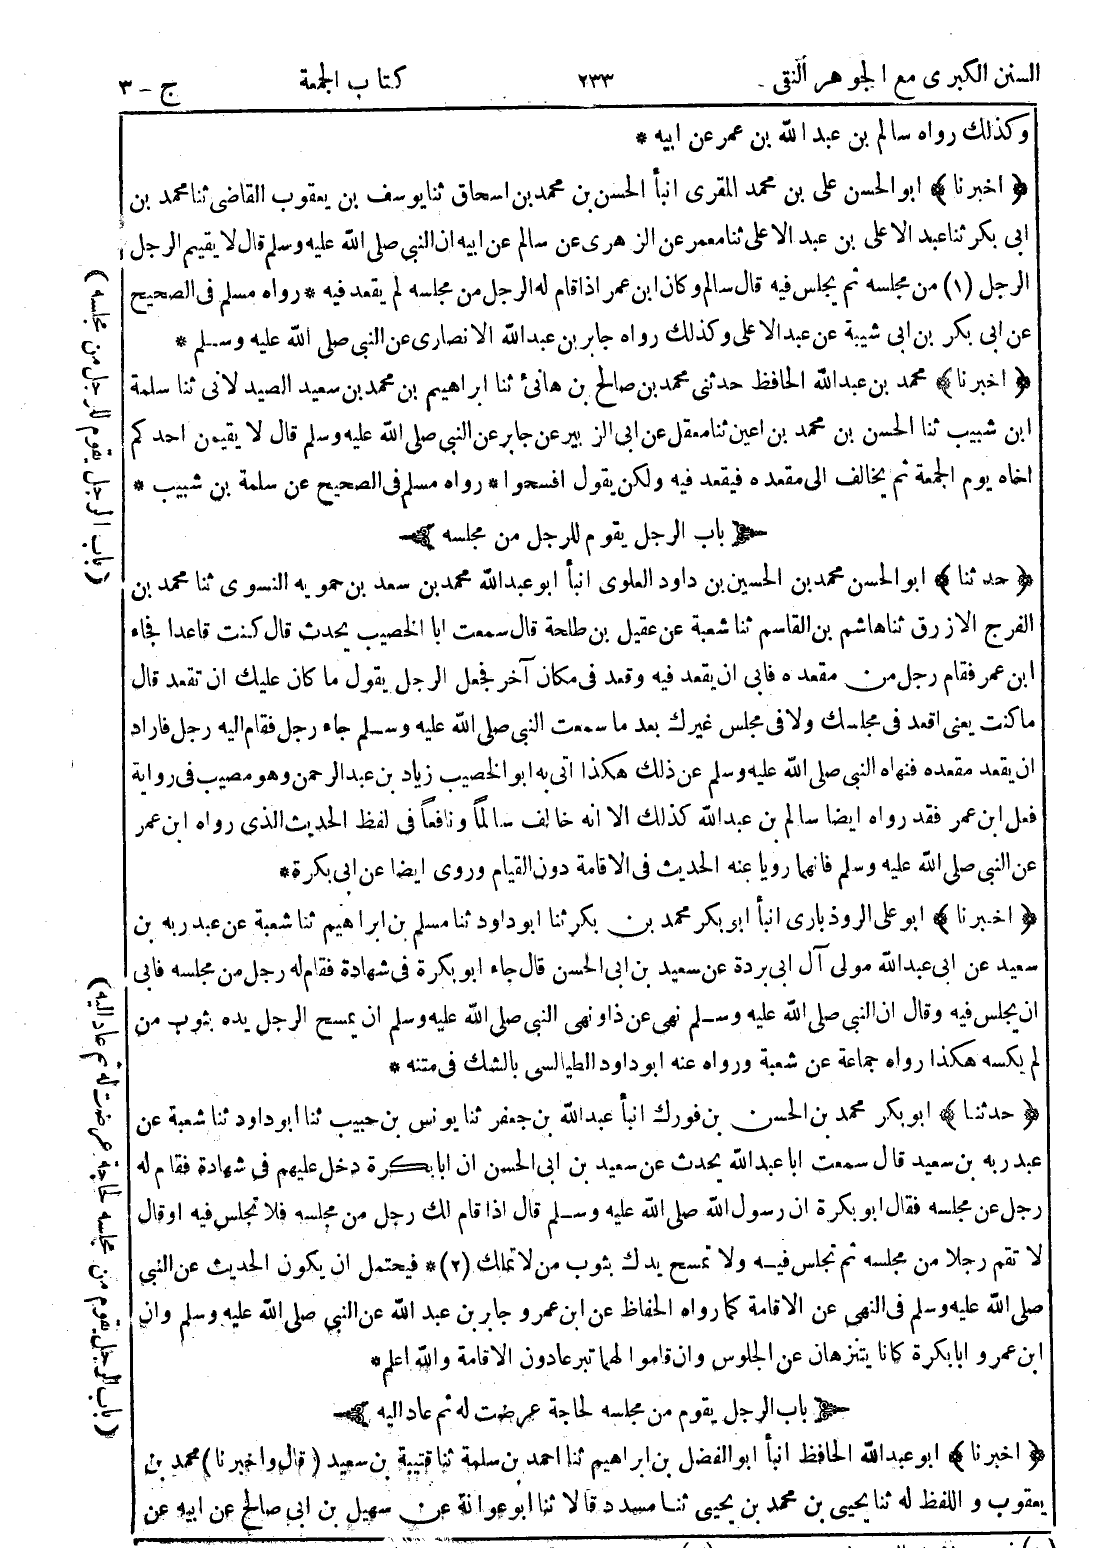 السنن الكبرى مع الجوهر النقى - ٢٣٣ كتاب الجمعة ج - ٣
وكذلك رواه سالم بن عبد الله بن عمر عن ابيه *
﴿ اخبرنا ﴾ ابو الحسن على بن محمد المقرى انبأ الحسن بن محمد بن اسحاق ثنا يوسف بن يعقوب القاضى ثنا محمد بن
ابى بكر ثنا عبد الاعلى بن عبد الاعلى ثنا معمر عن الزهرى عن سالم عن ابيه ان النبي صلى الله عليه وسلم قال لا يقيم الرجل
الرجل (١) من مجلسه ثم يجلس فيه قال سالم وكان ابن عمر اذا قام له الرجل من مجلسه لم يقعد فيه * رواه مسلم فى الصحيح
عن ابى بكر بن ابى شيبة عن عبد الاعلى وكذلك رواه جابر بن عبدالله الانصارى عن النبي صلى الله عليه وسلم *
﴿ اخبرنا ﴾ محمد بن عبدالله الحافظ حدثنى محمد بن صالح بن هانئ ثنا ابراهيم بن محمد بن سعيد الصيدلانى ثنا سلمة
ابن شبيب ثنا الحسن بن محمد بن اعين ثنا معقل عن ابى الزبير عن جابر عن النبي صلى الله عليه وسلم قال لا يقيمن احدكم
اخاه يوم الجمعة ثم يخالف الى مقعده فيقعد فيه ولكن يقول افسحوا * رواه مسلم فى الصحيح عن سلمة بن شبيب *
باب الرجل يقوم للرجل من مجلسه
﴿ حدثنا ﴾ ابو الحسن محمد بن الحسين بن داود العلوى انبأ ابو عبدالله محمد بن سعد بن حمويه النسوى ثنا محمد بن
الفرج الازرق ثنا هاشم بن القاسم ثنا شعبة عن عقيل بن طلحة قال سمعت ابا الخصيب يحدث قال كنت قاعدا فجاء
ابن عمر فقام رجل من مقعده فابى ان يقعد فيه وقعد فى مكان آخر فجعل الرجل يقول ما كان عليك ان تقعد قال
ما كنت يعنى اقعد فى مجلسك ولا فى مجلس غيرك بعد ما سمعت النبي صلى الله عليه وسلم جاء رجل فقام اليه رجل فاراد
ان يقعد مقعده فنهاه النبي صلى الله عليه وسلم عن ذلك هكذا اتى به ابو الخصيب زياد بن عبد الرحمن وهو مصيب فى رواية
فعل ابن عمر فقد رواه ايضا سالم بن عبدالله كذلك الا انه خالف سالماً ونافعاً فى لفظ الحديث الذى رواه ابن عمر
عن النبي صلى الله عليه وسلم فانهما رويا عنه الحديث فى الاقامة دون القيام وروى ايضا عن ابى بكرة *
﴿ اخبرنا ﴾ ابو على الروذبارى انبأ ابو بكر محمد بن بكر ثنا ابو داود ثنا مسلم بن ابراهيم ثنا شعبة عن عبد ربه بن
سعيد عن ابى عبدالله مولى آل ابى بردة عن سعيد بن ابى الحسن قال جاء ابو بكرة فى شهادة فقام له رجل من مجلسه فابى
ان يجلس فيه وقال ان النبي صلى الله عليه وسلم نهى عن ذا ونهى النبي صلى الله عليه وسلم ان يمسح الرجل يده بثوب من
لم يكسه هكذا رواه جماعة عن شعبة ورواه عنه ابو داود الطيالسى بالشك فى متنه *
﴿ حدثنا ﴾ ابو بكر محمد بن الحسن بن فورك انبأ عبدالله بن جعفر ثنا يونس بن حبيب ثنا ابو داود ثنا شعبة عن
عبد ربه بن سعيد قال سمعت ابا عبدالله يحدث عن سعيد بن ابى الحسن ان ابا بكرة دخل عليهم فى شهادة فقام له
رجل عن مجلسه فقال ابو بكرة ان رسول الله صلى الله عليه وسلم قال اذا قام لك رجل من مجلسه فلا تجلس فيه او قال
لا تقم رجلا من مجلسه ثم تجلس فيه ولا تمسح يدك بثوب من لا تملك (٢) * فيحتمل ان يكون الحديث عن النبي
صلى الله عليه وسلم فى النهى عن الاقامة كما رواه الحفاظ عن ابن عمر و جابر بن عبد الله عن النبي صلى الله عليه وسلم وان
ابن عمر و ابا بكرة كانا يتنزهان عن الجلوس وان قاموا لهما تبرعا دون الاقامة والله اعلم *
باب الرجل يقوم من مجلسه لحاجة عرضت له ثم عاد اليه
﴿ اخبرنا ﴾ ابو عبدالله الحافظ انبأ ابو الفضل بن ابراهيم ثنا احمد بن سلمة ثنا قتيبة بن سعيد ( قال واخبرنا ) محمد بن
يعقوب و اللفظ له ثنا يحيى بن محمد بن يحيى ثنا مسدد قالا ثنا ابو عوانة عن سهيل بن ابى صالح عن ابيه عن
(باب الرجل يقوم للرجل من مجلسه)
(باب الرجل يقوم من مجلسه لحاجة عرضت له ثم عاد اليه)